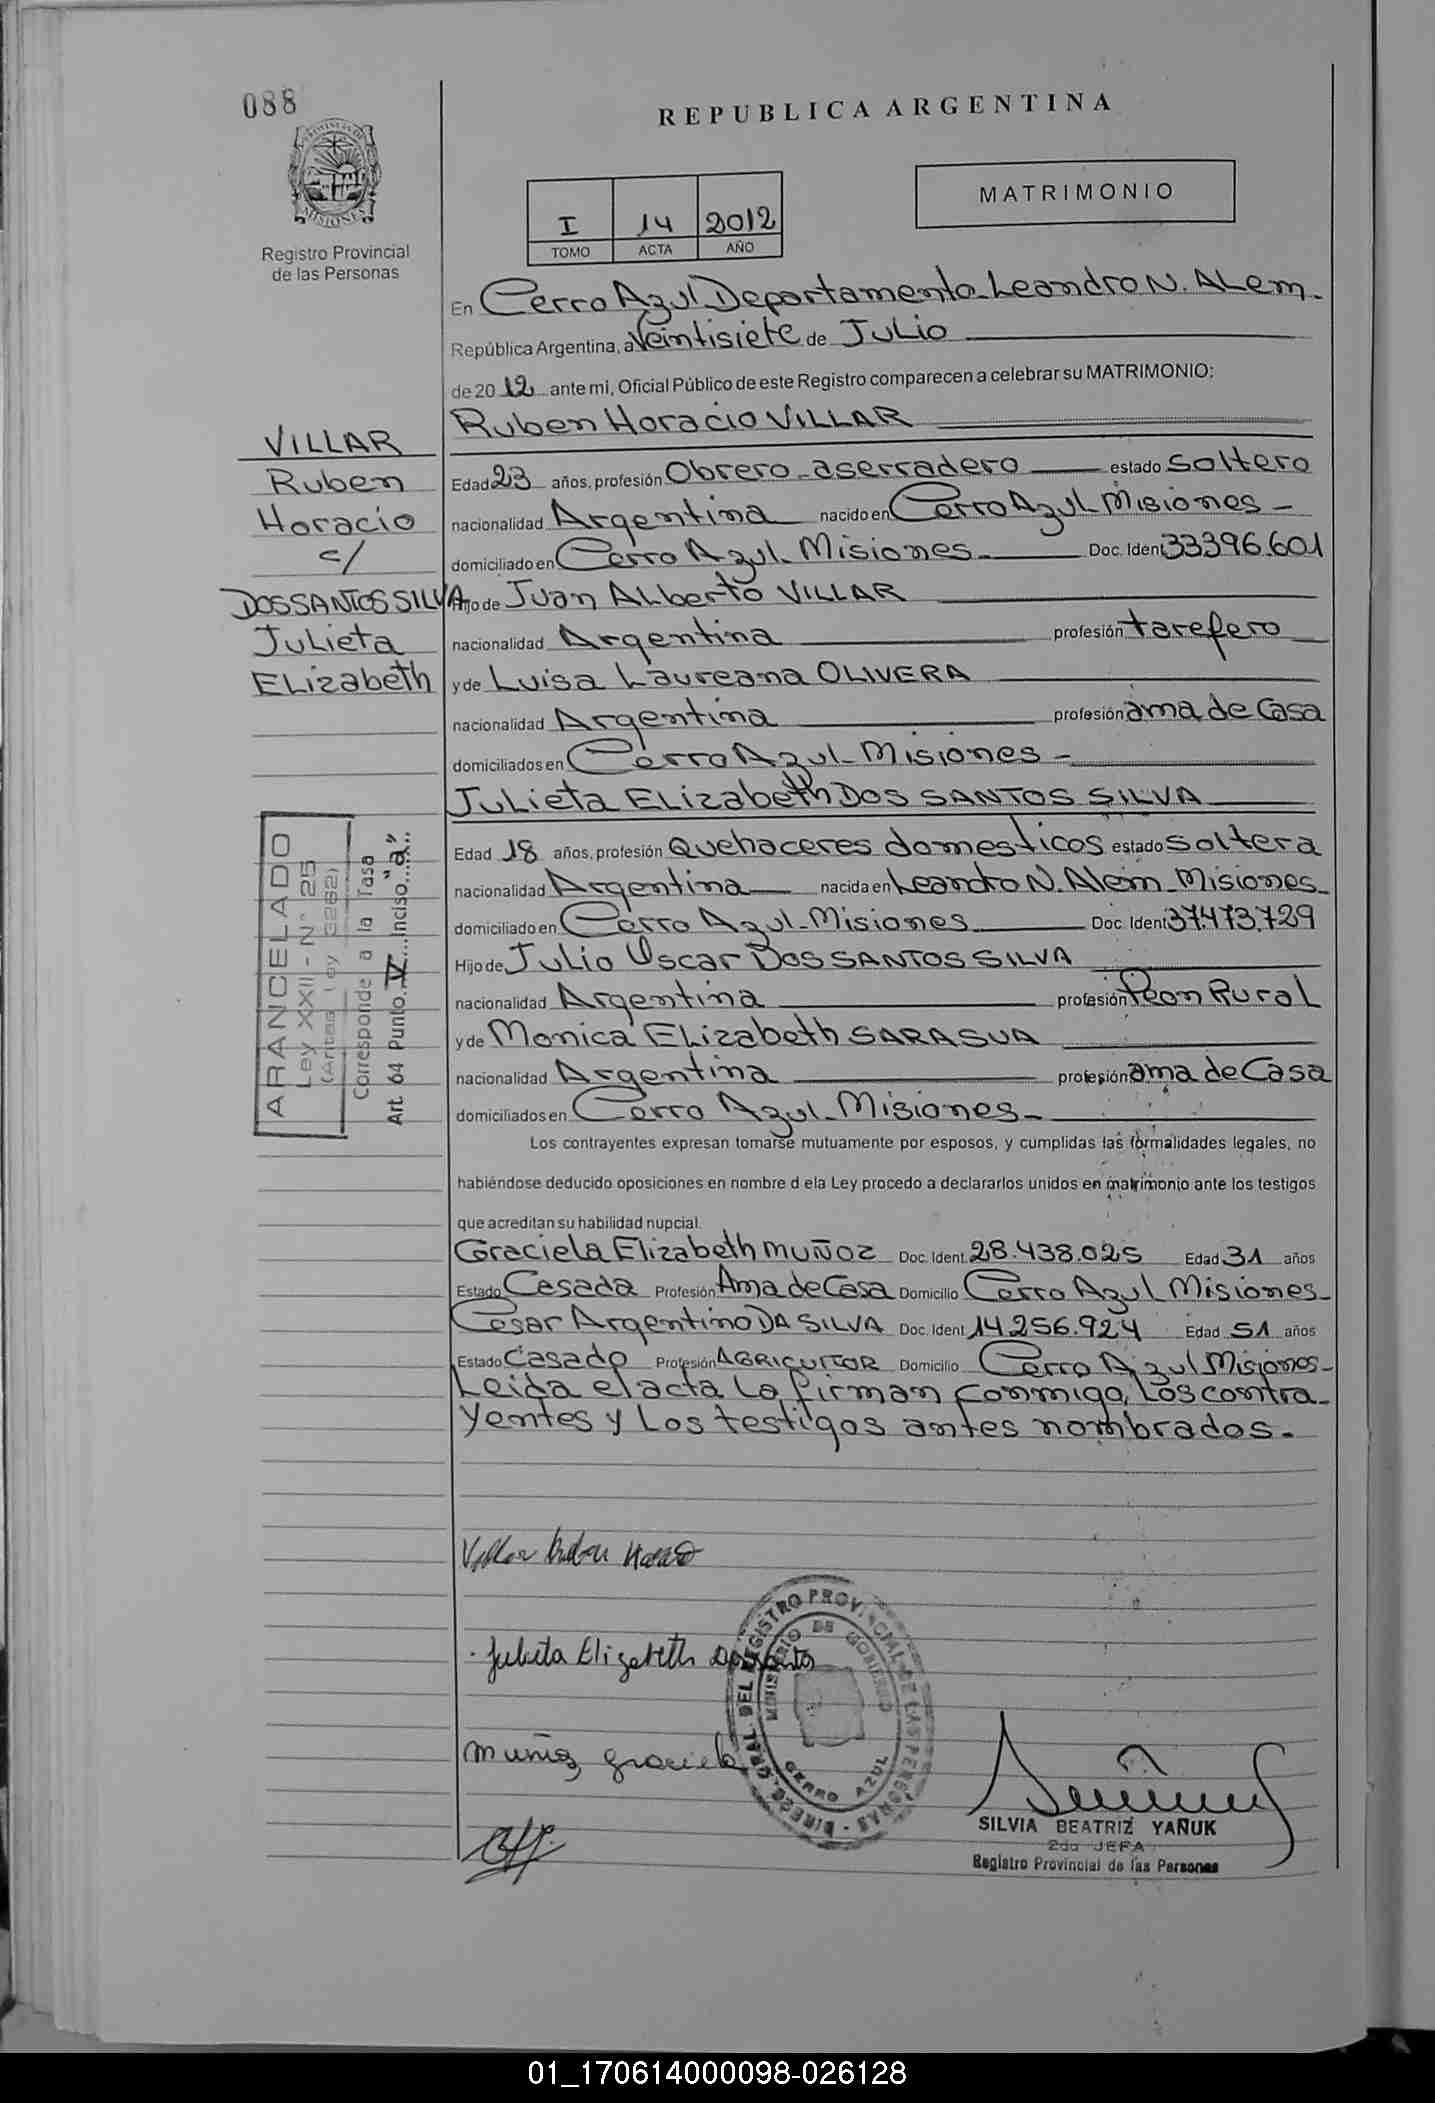 088
REPUBLICA ARGENTINA
PROVINCIA DE
MISIONES
Registro Provincial
de las Personas
I 14 2012
TOMO ACTA AÑO
MATRIMONIO
En Cerro Azul Departamento Leandro N. ALem.
República Argentina, a Veintisiete de Julio
de 2012 ante mi, Oficial Público de este Registro comparecen a celebrar su MATRIMONIO:
Ruben Horacio VILLAR
Edad 23 años, profesión Obrero aserradero estado soltero
nacionalidad Argentina nacido en Cerro Azul Misiones
domiciliado en Cerro Azul Misiones Doc. Ident 33396.601
Hijo de Juan Alberto VILLAR
nacionalidad Argentina profesión tarefero
y de Luisa Laureana OLIVERA
nacionalidad Argentina profesión ama de Casa
domiciliados en Cerro Azul Misiones
Julieta Elizabeth DOS SANTOS SILVA
Edad 18 años, profesión Quehaceres domesticos estado soltera
nacionalidad Argentina nacida en Leandro N. Alem Misiones
domiciliado en Cerro Azul Misiones Doc. Ident 37.473.729
Hijo de Julio Oscar DOS SANTOS SILVA
nacionalidad Argentina profesión Peon Rural
y de Monica Elizabeth SARASUA
nacionalidad Argentina profesión ama de Casa
domiciliados en Cerro Azul Misiones
Los contrayentes expresan tomarse mutuamente por esposos, y cumplidas las formalidades legales, no
habiéndose deducido oposiciones en nombre d ela Ley procedo a declararlos unidos en matrimonio ante los testigos
que acreditan su habilidad nupcial.
Graciela Elizabeth MUÑOZ Doc. Ident. 28.438.025 Edad 31 años
Estado Casada Profesión Ama de Casa Domicilio Cerro Azul Misiones
Cesar Argentino DA SILVA Doc. Ident 14.256.924 Edad 51 años
Estado Casado Profesión AGRICULTOR Domicilio Cerro Azul Misiones
Leida el acta la firman conmigo, los contra-
yentes y los testigos antes nombrados.
VILLAR
Ruben
Horacio
c/
DOS SANTOS SILVA
Julieta
Elizabeth
ARANCELADO
Ley XXII - N° 25
(Antes Ley 3262)
Corresponde a la Tasa
Art. 64 Punto IV Inciso "a"
Villar Ruben Horacio
Julieta Elizabeth
Muñoz Graciela
DIRECC. GRAL. DEL REGISTRO PROVINCIAL DE LAS PERSONAS
MINISTERIO DE GOBIERNO
CERRO AZUL
SILVIA BEATRIZ YAÑUK
2da JEFA
Registro Provincial de las Personas
01_170614000098-026128